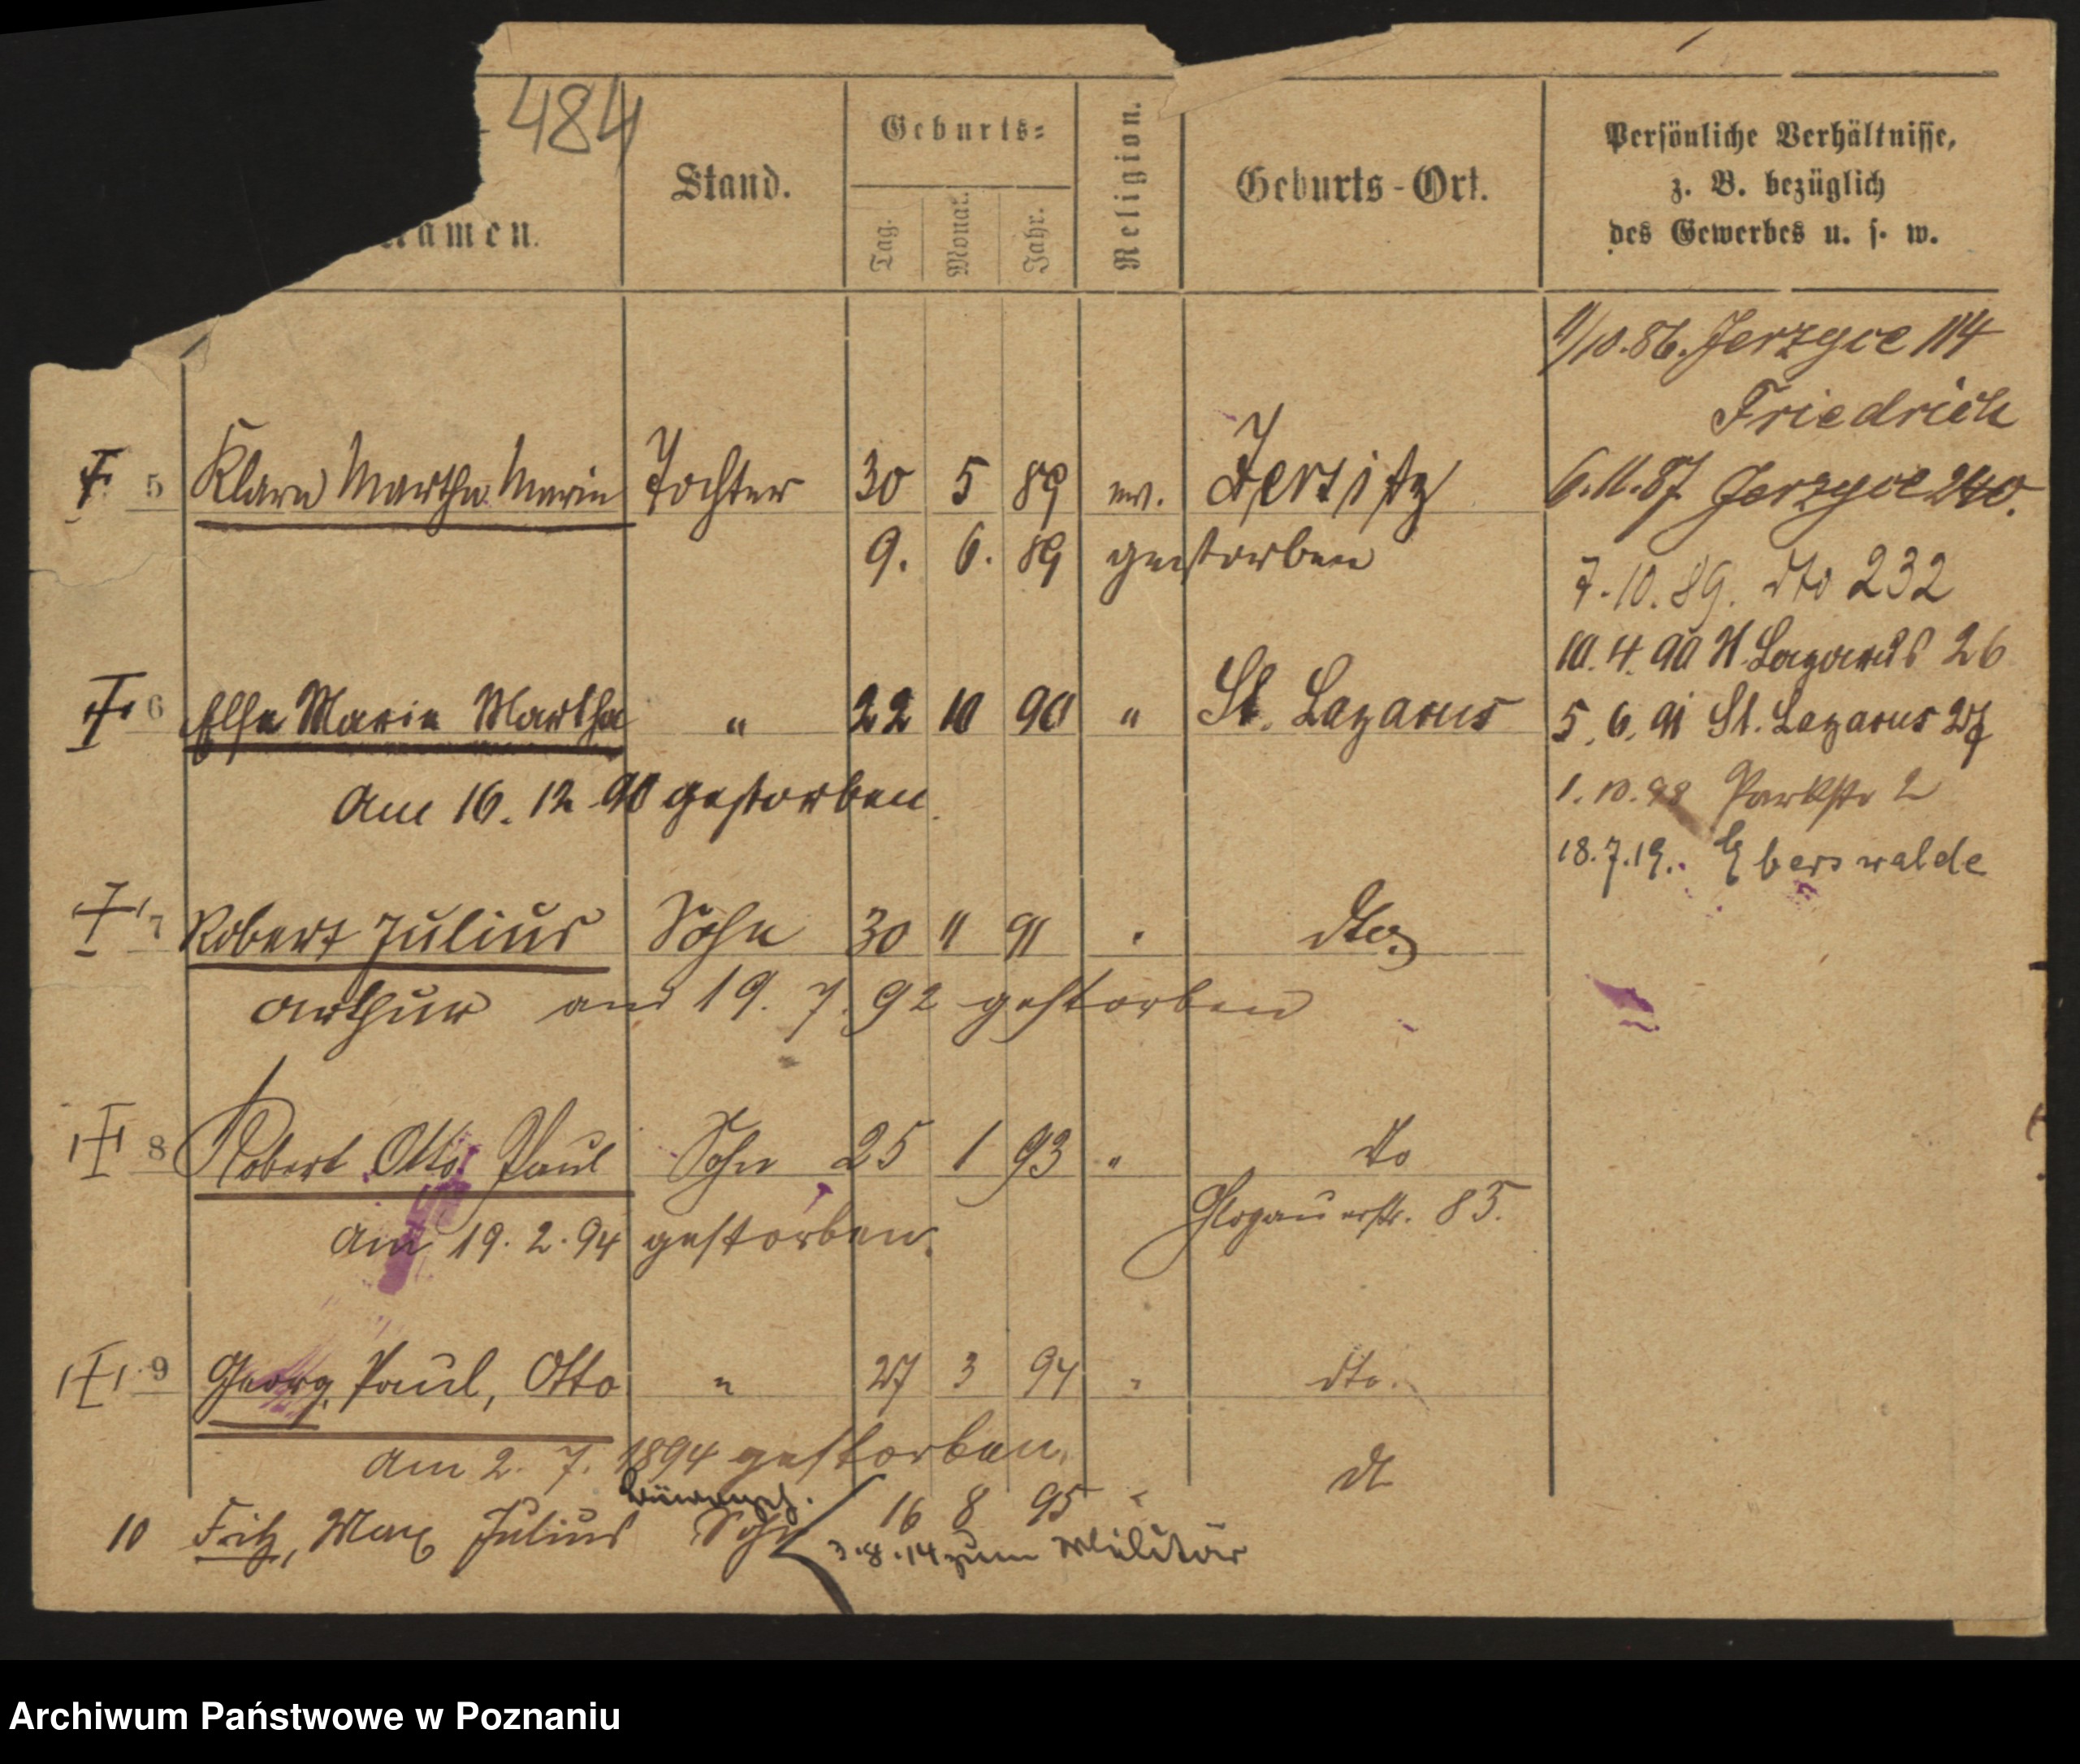 484
amen.
Stand.
Geburts-
Tag.
Monat.
Jahr.
Religion.
Geburts-Ort.
Persönliche Verhältnisse,
z. B. bezüglich
des Gewerbes u. s. w.
1/10.86. Jerzyce 114
Friedrich
5 Klara Martha Marie Tochter 30 5 89 ev. Jersitz
6.11.87 Jerzyce 240.
9. 6. 89 gestorben
7.10.89. dto 232
10.4.90 St. Lazarus 26
6 Else Marie Martha " 22 10 90 " St. Lazarus
5.6.91 St. Lazarus 27
am 16.12.90 gestorben.
1.10.98 Parkstr 2
18.7.19. Eberswalde
7 Robert Julius Sohn 30 11 91 " dto
Arthur am 19.7.92 gestorben
8 Robert Otto Paul Sohn 25 1 93 " do
Glogauerstr. 85.
am 19.2.94 gestorben.
9 Georg, Paul, Otto " 27 3 94 " dto.
am 2.7.1894 gestorben.
10 Fritz, Max Julius Sohn 16 8 95 " dt
3.8.14 zum Militär
Archiwum Państwowe w Poznaniu